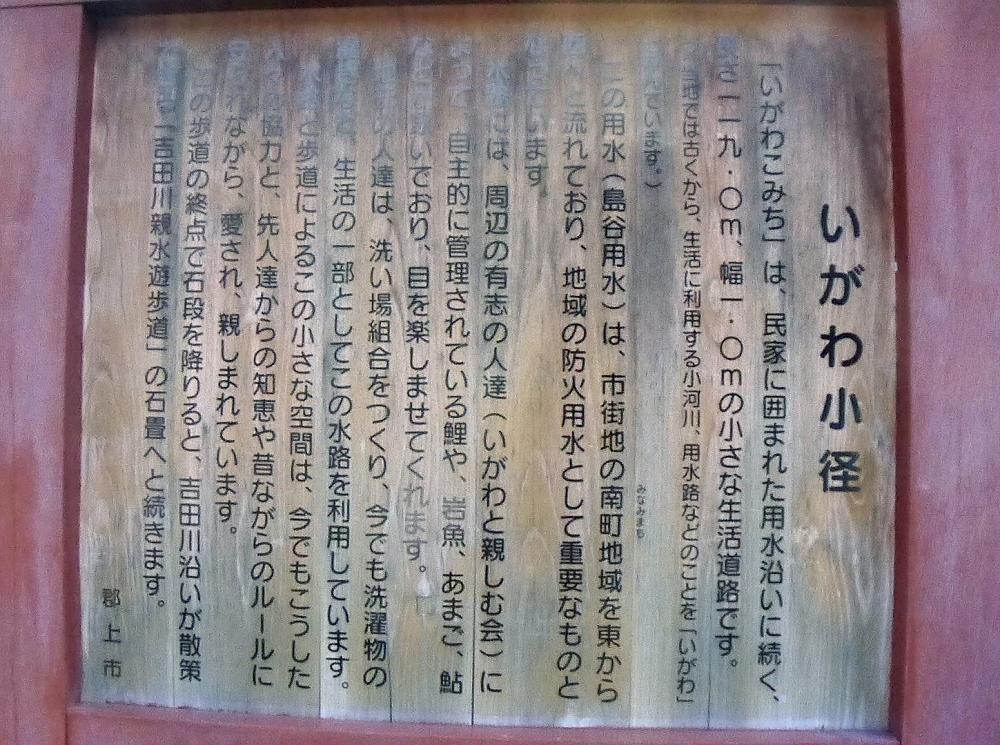 いがわ小径
「いがわこみち」は、民家に囲まれた用水沿いに続く、
長さ一一九・〇m、幅一・〇mの小さな生活道路です。
当地では古くから、生活に利用する小河川、用水路などのことを「いがわ」
んでいます。）
この用水（島谷用水）は、市街地の南町地域を東から
みなみまち
へと流れており、地域の防火用水として重要なものと
ています。
には、周辺の有志の人達（いがわと親しむ会）に
よって、自主的に管理されている鯉や、岩魚、あまご、鮎
などが泳いでおり、目を楽しませてくれます。
の人達は、洗い場組合をつくり、今でも洗濯物の
、生活の一部としてこの水路を利用しています。
と歩道によるこの小さな空間は、今でもこうした
人々の協力と、先人達からの知恵や昔ながらのルールに
守られながら、愛され、親しまれています。
この歩道の終点で石段を降りると、吉田川沿いが散策
「吉田川親水遊歩道」の石畳へと続きます。
郡上市